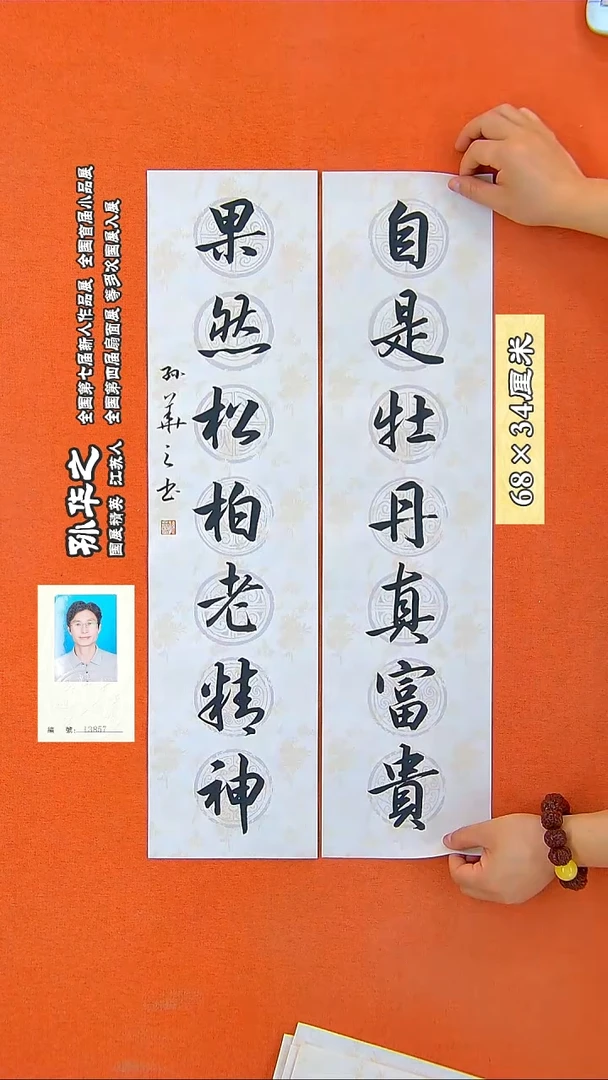 自是牡丹真富貴
果然松柏老精神
孙華之书
68×34厘米
孙华之
国展精英 江苏人
全国第七届新人作品展 全国首届小品展
全国第四届扇面展 等多次国展入展
編 號: 13857